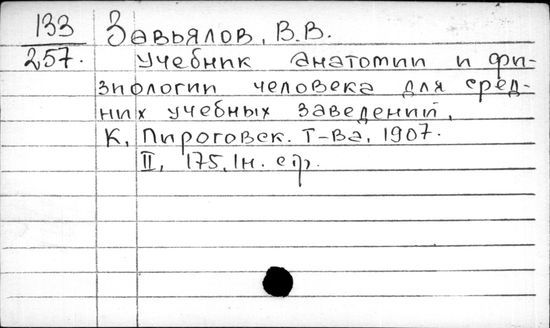 133 Завьялов, В.В.
257. Учебник анатомии и фи-
зиологии человека для сред-
них учебных заведений.
К, Пироговск. Т-ва, 1907.
II, 175, 1н. стр.